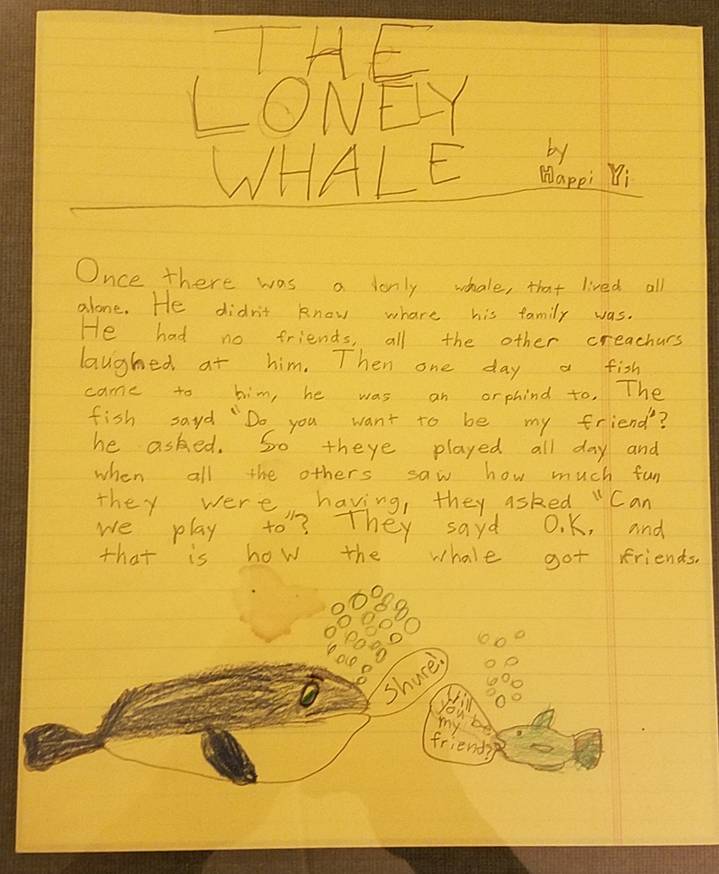 THE
LONELY
WHALE
by
Happi Yi
Once there was a lonly whale, that lived all
alone. He didn't know whare his family was.
He had no friends, all the other creachurs
laughed at him. Then one day a fish
came to him, he was an orphind to. The
fish sayd "Do you want to be my friend"?
he asked. So theye played all day and
when all the others saw how much fun
they were having, they asked "Can
we play to"? They sayd O.K. and
that is how the whale got friends.
Shure!
Will
you be
my
friend?